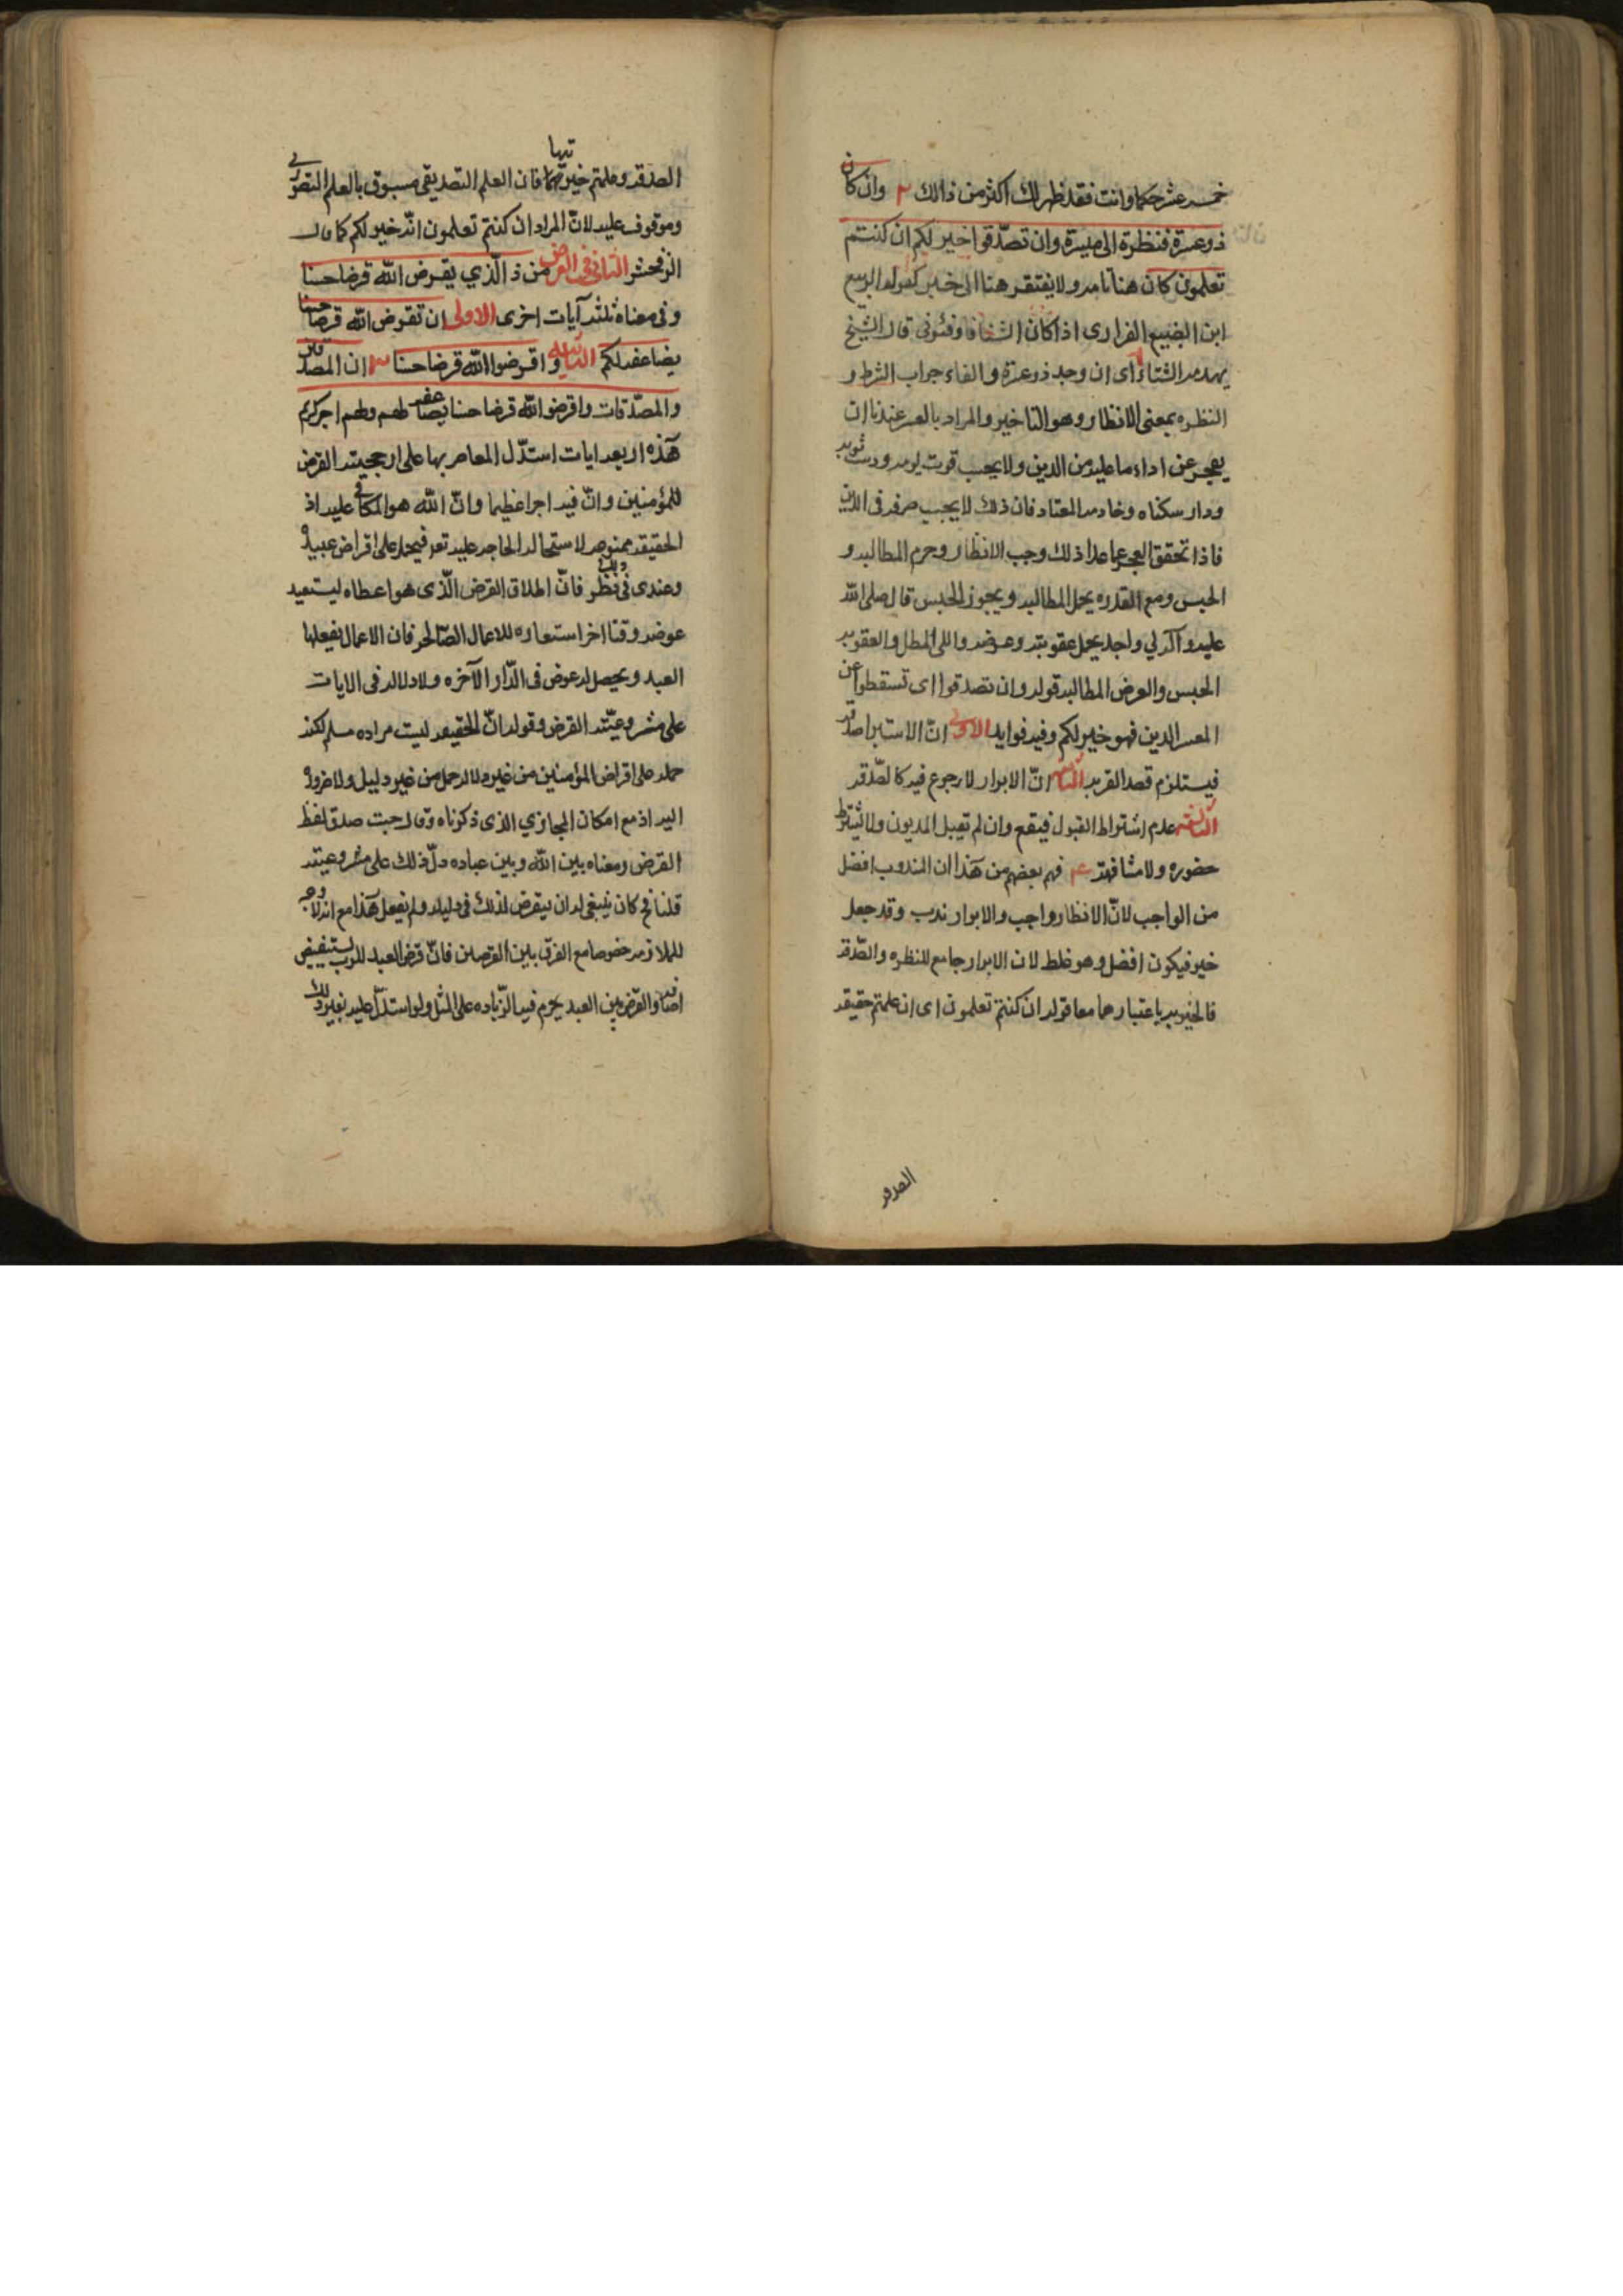 خمسة عشر حكما وانت فقد ظهر لك اكثر من ذالك ٢ وان كان
ذو عسرة فنظرة الى ميسرة وان تصدّقوا خير لكم ان كنتم
تعلمون كان هنا تامه ولا يفتقر هنا الى خبر كقوله الربيع
ابن الضبيع الفزارى اذا كان الشتا فادفئونى فان الشيخ
يهدمه الشتاء اى ان وجد ذو عسرة والفاء جواب الشرط و
النظره بمعنى الانظار وهو التاخير والمراد بالعسر عندنا ان
يعجز عن اداء ما عليه من الدين ولا يحسب قوت يومه ودست ثوبه
ودار سكناه وخادمه المعتاد فان ذلك لا يجب صرفه فى الدين
فاذا تحقق العجز عما عدا ذلك وجب الانظار وحرم المطالبه و
الحبس ومع القدره يحل المطالبه ويجوز الحبس قال صلى الله
عليه وآله لي واجد يحل عقوبته وعرضه واللى المطل والعقوبه
الحبس والعرض المطالبه قوله وان تصدقوا اى تسقطوا عن
المعسر الدين فهو خير لكم وفيه فوايد الاولى انّ الابراء صدقه
فيستلزم قصد القربه الثانيه انّ الابراء لا رجوع فيه كالصّدقه
الثالثه عدم اشتراط القبول فيقع وان لم تقبل المديون ولا يشترط
حضوره ولا مشافهته ٤ فهم بعضهم من هذا ان المندوب افضل
من الواجب لانّ الانظار واجب والابراء ندب وقد جعل
خير فيكون افضل وهو غلط لان الابراء جامع للنظره والصّدقه
فالخيريه باعتبارهما معا قوله ان كنتم تعلمون اى ان علمتم حقيقه
الصدقه
الصدقه وعلمتم خيريتها فان العلم التصديقى مسبوق بالعلم التصورى
وموقوف عليه لانّ المراد ان كنتم تعلمون انّه خير لكم كما قال
الزمخشر الثانى فى القرض من ذا الّذي يقرض الله قرضا حسنا
وفى معناه ثلثه آيات اخرى الاولى ان تقرض الله قرضا حسنا
يضاعفه لكم الثانيه واقرضوا الله قرضا حسنا ٣ ان المصدقين
والمصّدقات واقرضوا الله قرضا حسنا يضاعفه لهم ولهم اجر كريم
هذه اربعه ايات استدّل المعاصر بها على ارجحيته القرض
للمؤمنين وانّ فيه اجرا عظيما وانّ الله هو المكافى عليه اذ
الحقيقه ممنوعه لاستحاله الحاجه عليه تعه فيحمل على اقراض عبيده
وعندى فى ذلك نظر فانّ اطلاق القرض الّذى هو اعطاء ليستعيد
عوضه وقتا اخر استعاره للاعمال الصّالحه فان الاعمال يفعلها
العبد ويحصل له عوض فى الدّار الآخره ولا دلاله فى الايات
على مشروعيّته القرض وقوله انّ الحقيقه ليست مراده مسلم لكنه
حمله على اقراض المؤمنين من غير دلاله حمل من غير دليل ولا ضروره
اليه اذ مع امكان المجازي الذى ذكرناه وقال حيث صدق لفظ
القرض ومعناه بين الله وبين عباده دلّ ذلك على مشروعيته
قلنا فح كان ينبغى له ان يتعرض لذلك فى دليله ولم يفعل هذا مع انه لا وجه
للملازمه خصوصا مع الفرق بين القرضين فانّ قرض العبد للرب يستفيض
اضعافه والقرض بين العبد يحرم فيه الزّياده على المثل ولو استدلّ عليه بغير ذلك